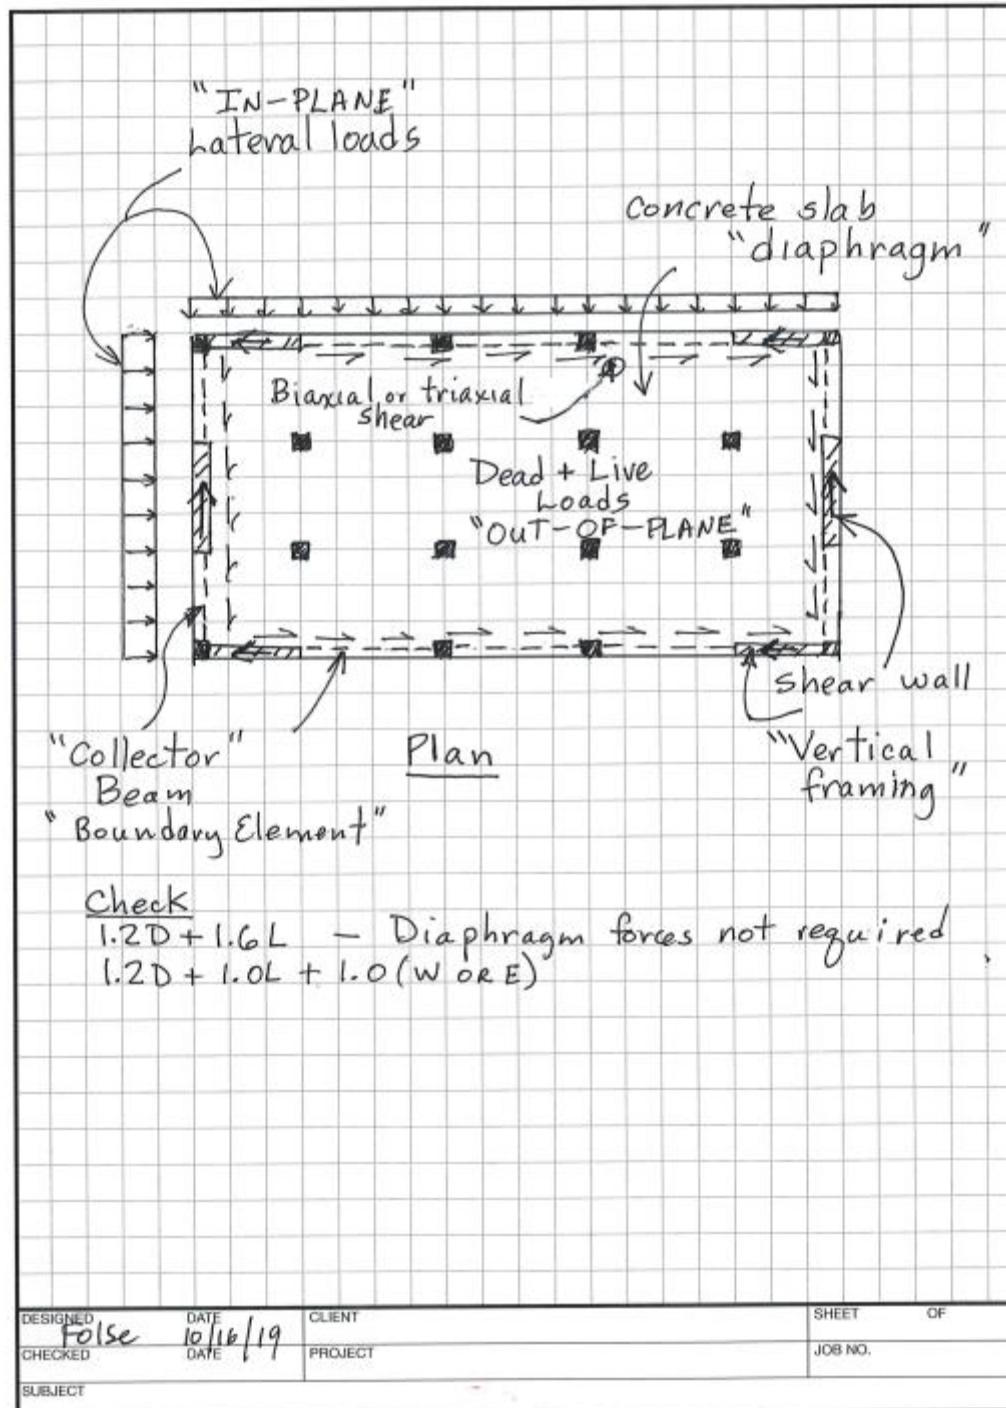 "IN-PLANE"
Lateral loads
concrete slab
"diaphragm"
Biaxial or triaxial
shear
Dead + Live
Loads
"OUT-OF-PLANE"
shear wall
"Collector"
Beam
"Boundary Element"
Plan
"Vertical
framing"
Check
1.2D + 1.6L - Diaphragm forces not required
1.2D + 1.0L + 1.0(W OR E)
DESIGNED Folse DATE 10/16/19 CLIENT SHEET OF
CHECKED DATE PROJECT JOB NO.
SUBJECT